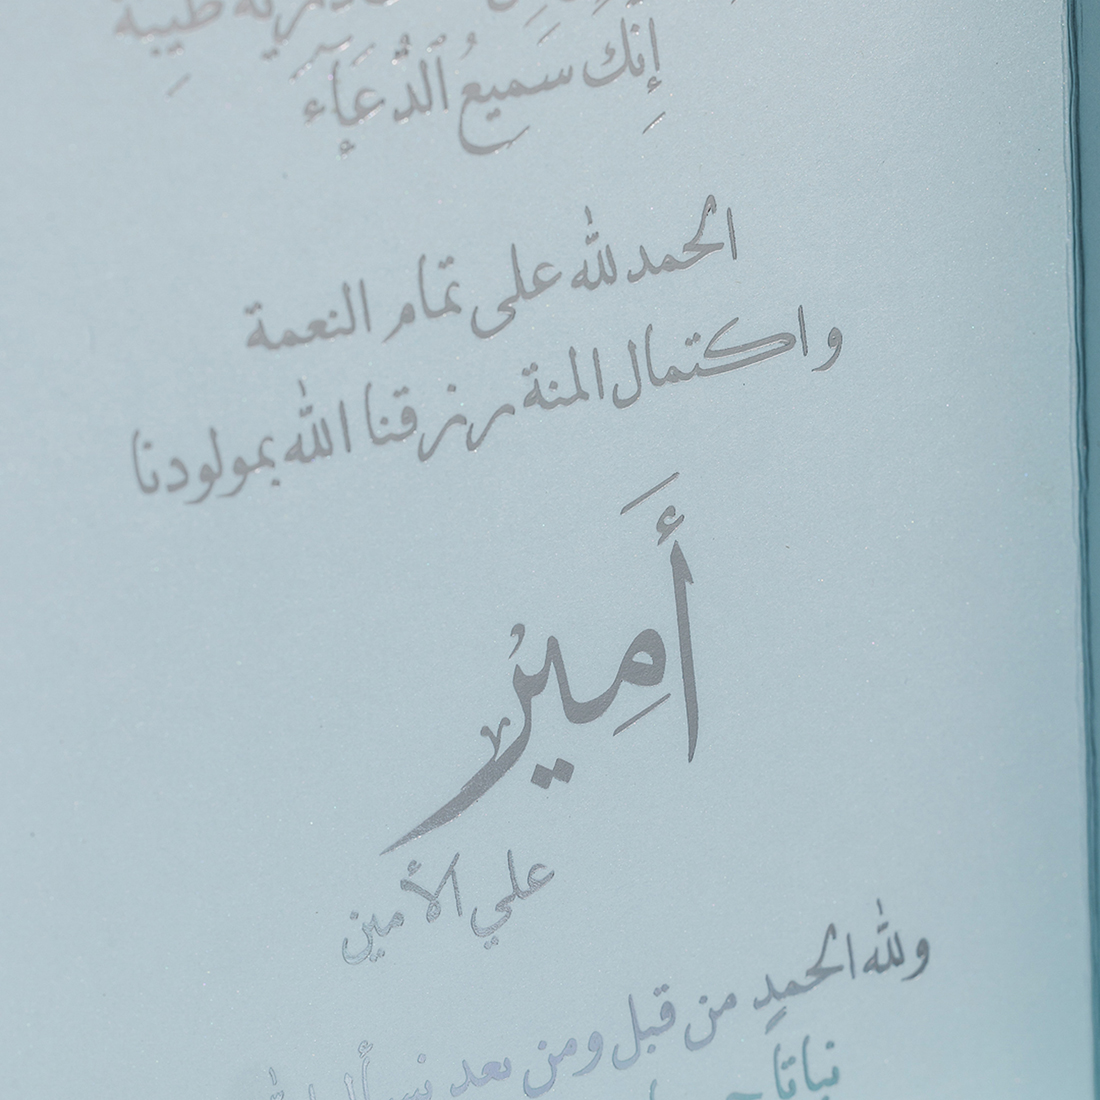 ذرية طيبة
إنك سميع ٱلدُّعَآءِ
الحمد لله على تمام النعمة
واكتمال المنة رزقنا الله بمولودنا
أَمِيرُ
علي الأمين
ولله الحمد من قبل ومن بعد نسأل الله
نباتا